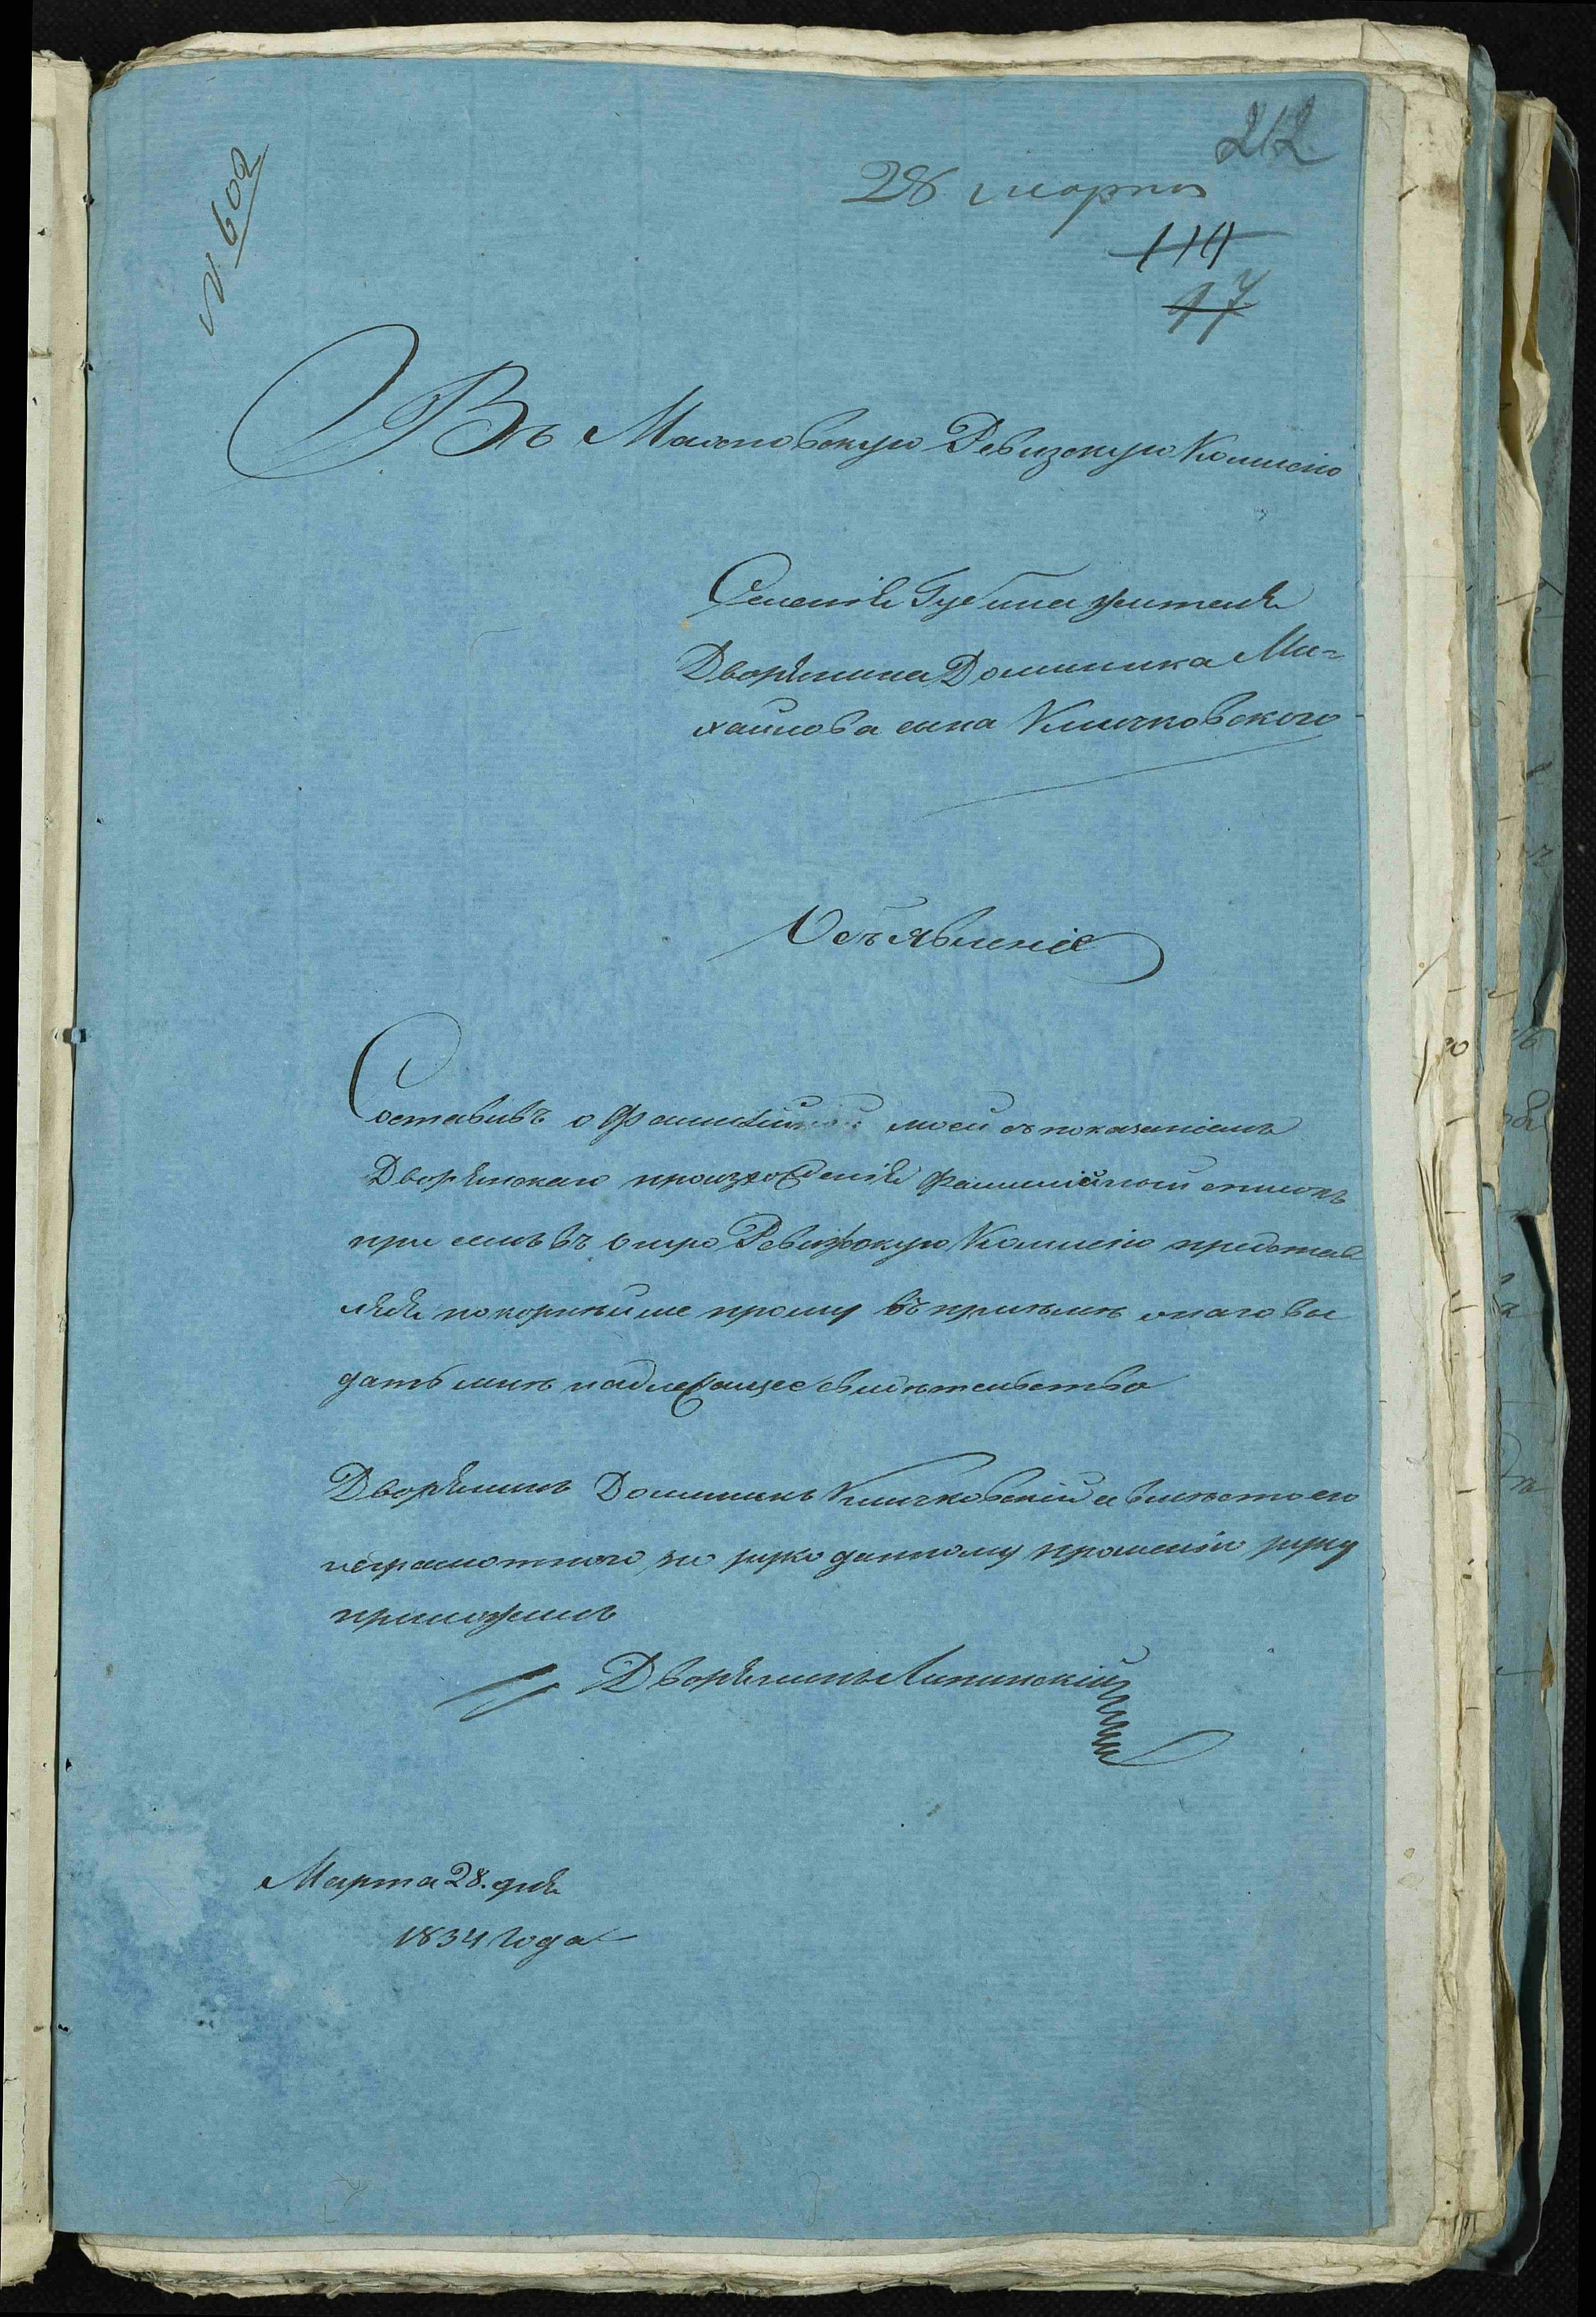 212
28 марта
N. 602
114
17
Въ Ревизскую Комисію
Селенія Губина жителя
Дворянина Доминика Ми-
хайлова сына Кличковского
Объявленіе
Составивъ о Фамиліи моей съ показаніемъ
Дворянскаго произхожденія Фамилійной списокъ
при семъ въ оную Ревизскую Комисію представ
ляя покорнѣйше прошу въ приѣмѣ онаго вы
дать мнѣ надлежащее свидѣтельство
Дворянинъ Доминикъ Кличковскій а вмѣсто его
неграмотного по рукоданному прошенію руку
приложилъ
Дворянинъ Липинскій
Марта 28. дня
1834 года